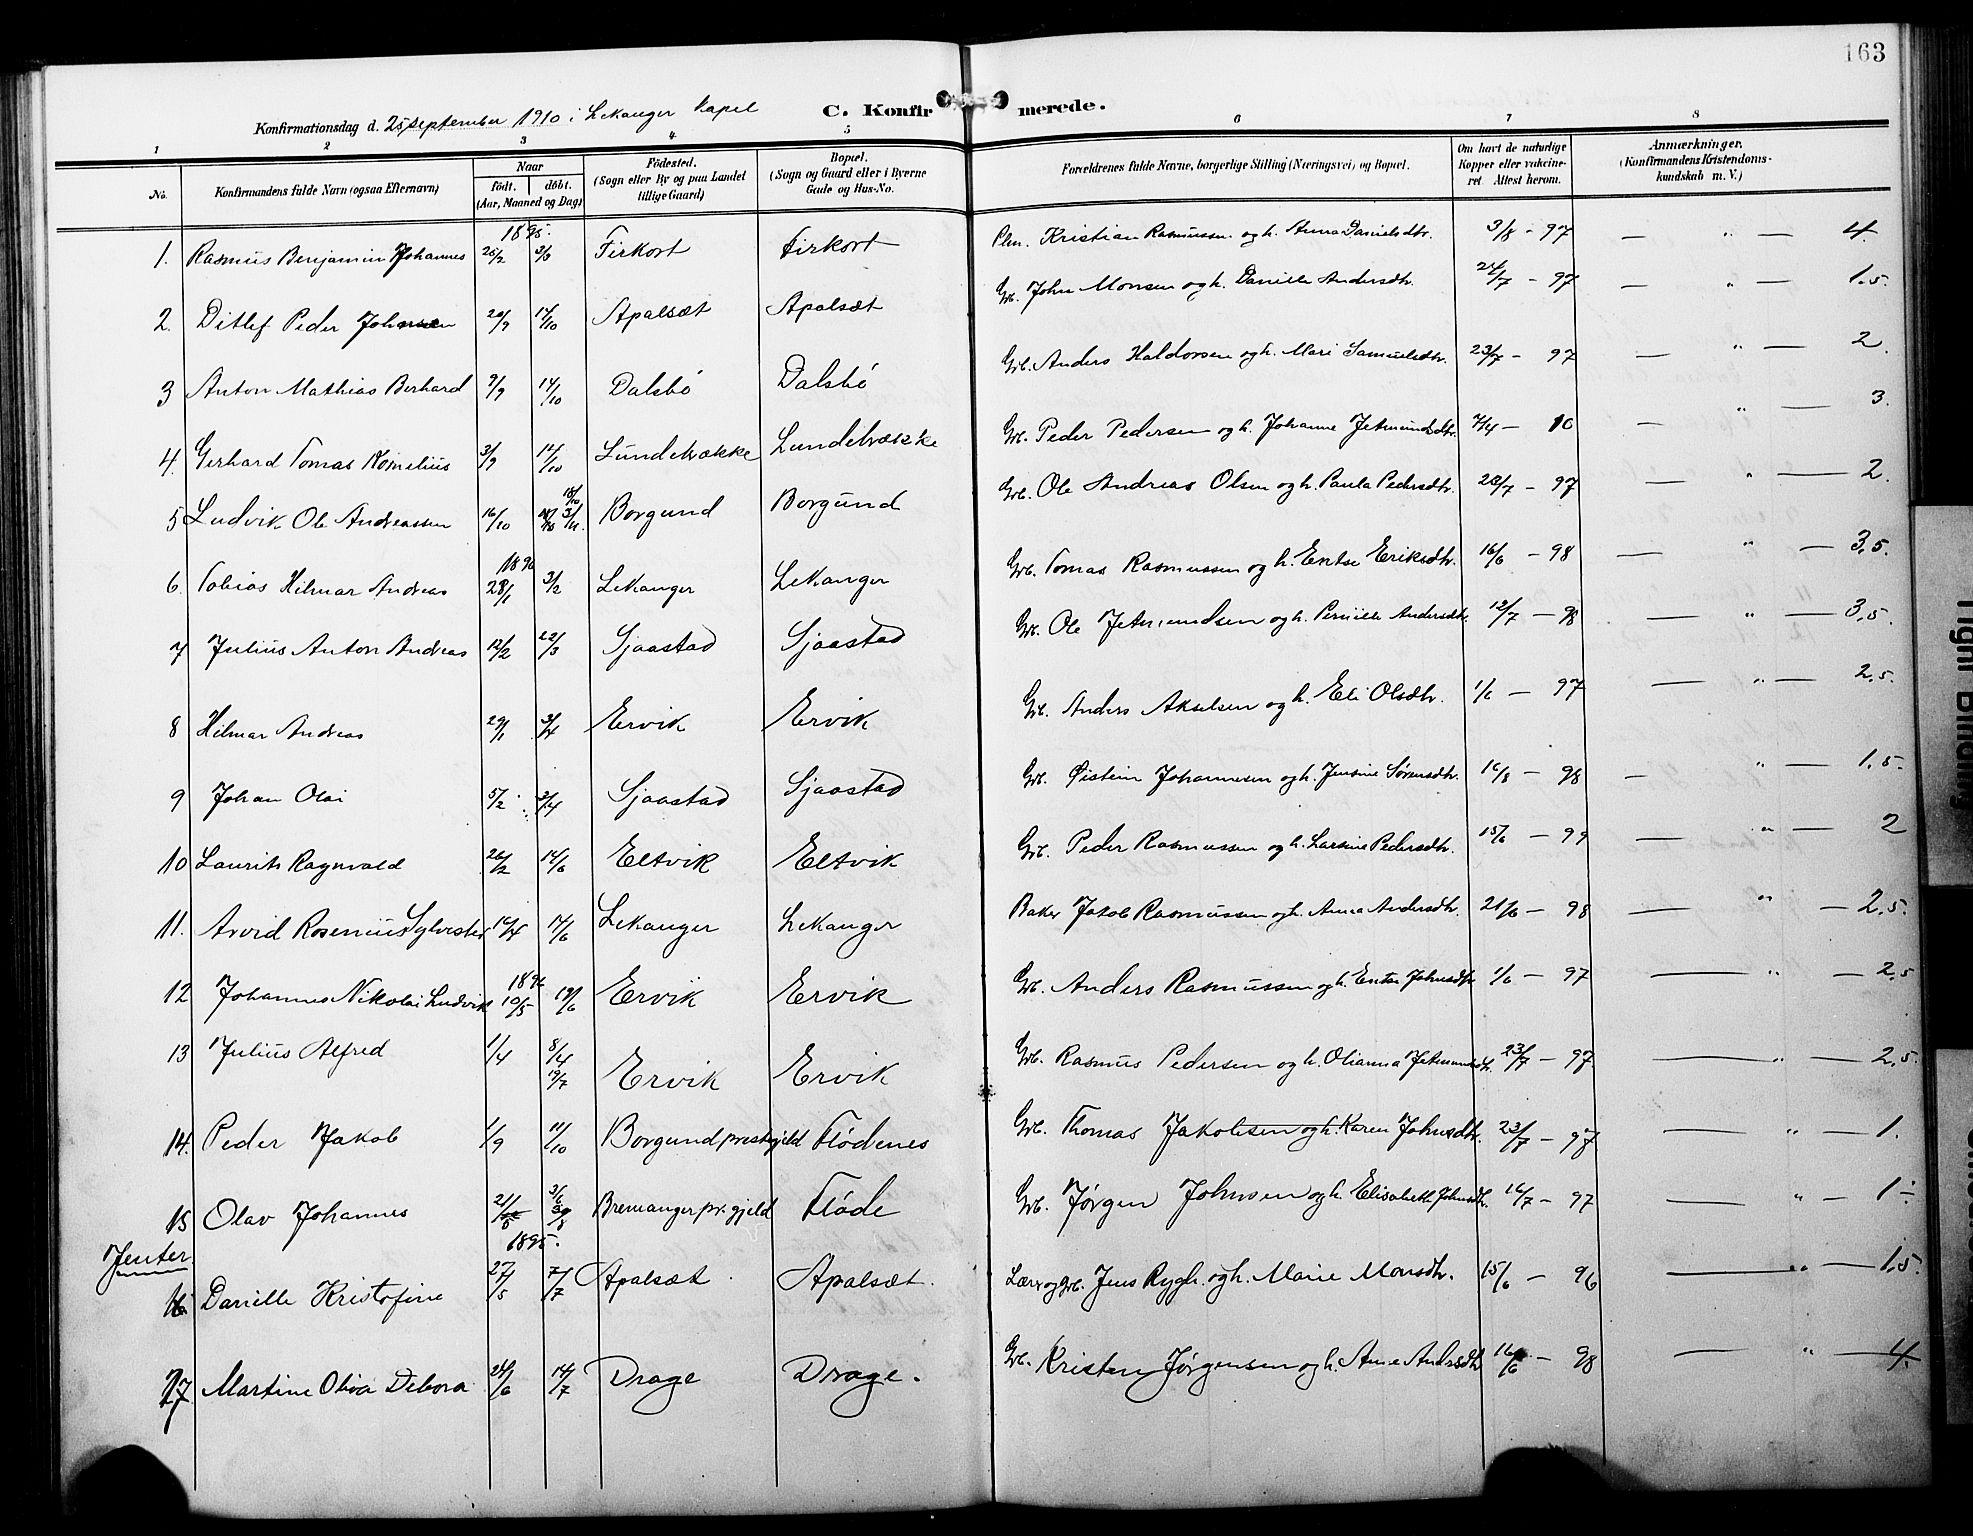 163
Konfirmationsdag d. 25 september 1910 i Lekanger Kapel
C. Konfirmerede.
1 2 3 4 5 6 7 8
No. Konfirmandens fulde Navn (ogsaa Efternavn) Naar født. døbt. (Aar, Maaned og Dag) Fødested. (Sogn eller By og paa Landet tillige Gaard) Bopæl. (Sogn og Gaard eller i Byerne Gade og Hus-No. Forældrenes fulde Navne, borgerlige Stilling (Næringsvei) og Bopæl. Om havt de naturlige Kopper eller vaccineret. Attest herom. Anmærkninger. (Konfirmandens Kristendomskundskab m. V.)
1895.
1. Rasmus Benjamin Johannes 25/2 3/3 Firkort Firkort Plm. Kristian Rasmussen og h. Anna Danielsdtr. 3/8 - 97 — „ — 4.
2. Ditlef Peder Johnsen 20/9 14/10 Apalsæt Apalsæt Grb. John Monsen og h. Danielle Andersdtr. 24/7 - 97 — „ — 1.5.
3 Anton Mathias Berhard 9/9 14/10 Dalsbø Dalsbø Grb. Anders Haldorsen og h. Mari Samuelsdtr. 23/7 - 97 — „ — 2.
4. Gerhard Tomas Kornelius 3/9 14/10 Lundebrække Lundebrække Grb. Peder Pedersen og h. Johanne Jetmundsdtr. 7/4 - 10 — „ — 3.
5 Ludvik Ole Andreassen 16/10 18/10 3/11. Borgund Borgund Grb. Ole Andreas Olsen og h. Paula Pedersdtr. 28/7 - 97 — „ — 2.
1896
6. Tobias Hilmar Andreas 28/1 3/2 Lekanger Lekanger Grb. Tomas Rasmussen og h. Entse Eriksdtr. 16/6 - 98 — „ — 3,5.
7 Julius Anton Andreas 12/2 22/3 Sjaastad Sjaastad Grb. Ole Jetmundsen og h. Pernille Andersdtr. 12/7 - 98 — „ — 3,5.
8 Hilmar Andreas 29/1 3/4 Ervik Ervik Grb. Anders Akselsen og h. Eli Olsdtr. 1/6 - 97 — „ — 2,5.
9 Johan Olai 5/2 3/4 Sjaastad Sjaastad Grb. Øistein Johannesen og h. Jensine Sørensdtr. 16/8 - 98 — „ — 1,5.
10 Laurits Ragnvald 26/2 14/6 Eltvik Eltvik Grb. Peder Rasmussen og h. Larsine Pedersdtr. 15/6 - 99 — „ — 2
11. Arvid Rosenius Sylvester 16/4 14/6 Lekanger Lekanger Baker Jakob Rasmussen og h. Anna Andersdtr. 21/6 - 98 — „ — 2,5.
1896
12 Johannes Nikolai Ludvik 10/5 19/6 Ervik Ervik Grb. Anders Rasmussen og h. Entse Johnsdtr 1/6 - 97 — „ — 2,5
13 Julius Alfred 1/4 8/4 19/7 Ervik Ervik Grb. Rasmus Pedersen og h. Olianna Jetmundsdtr. 23/7 - 97 — „ — 2,5.
14. Peder Jakob 1/9 11/10 Borgund prestegjeld Flødenes Grb. Thomas Jakobsen og h. Karen Johnsdtr. 23/7 - 97 — „ — 1.
15 Olav Johannes 21/5 3/6 30/8 Bremanger pr.gjeld Fløde Grb. Jørgen Johnsen og h. Elisabeth Johnsdtr. 16/7 - 97 — „ — 1÷
Jenter
1895.
16 Danielle Kristofine 27/5 7/7 Apalsæt. Apalsæt. Lærer og Grb. Jens Rygh. og h. Marie Monsdtr. 15/6 - 96 — „ — 1,5.
17 Martine Olivia Debora 24/6 14/7 Drage Drage. Grb. Kristen Jørgensen og h. Anne Andrsdtr 16/6 - 98 — „ — 4.
Tight Binding